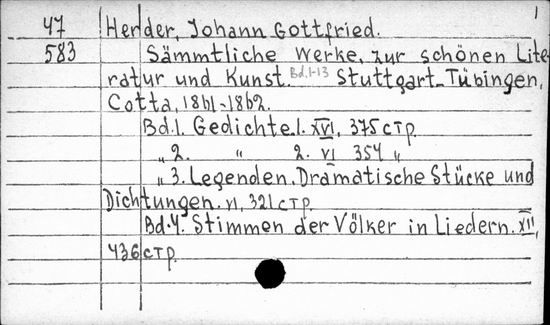 1
47 Herder, Johann Gottfried.
583 Sämmtliche Werke, zur schönen Lite-
ratur und Kunst. Bd.1-13 Stuttgart-Tübingen,
Cotta, 1861-1862.
Bd.1. Gedichte.1. XVI, 375 стр.
„ 2. „ 2. VI 354 „
„ 3. Legenden. Dramatische Stücke und
Dichtungen. VI, 321 стр.
Bd.4. Stimmen der Völker in Liedern. XII,
436 стр.